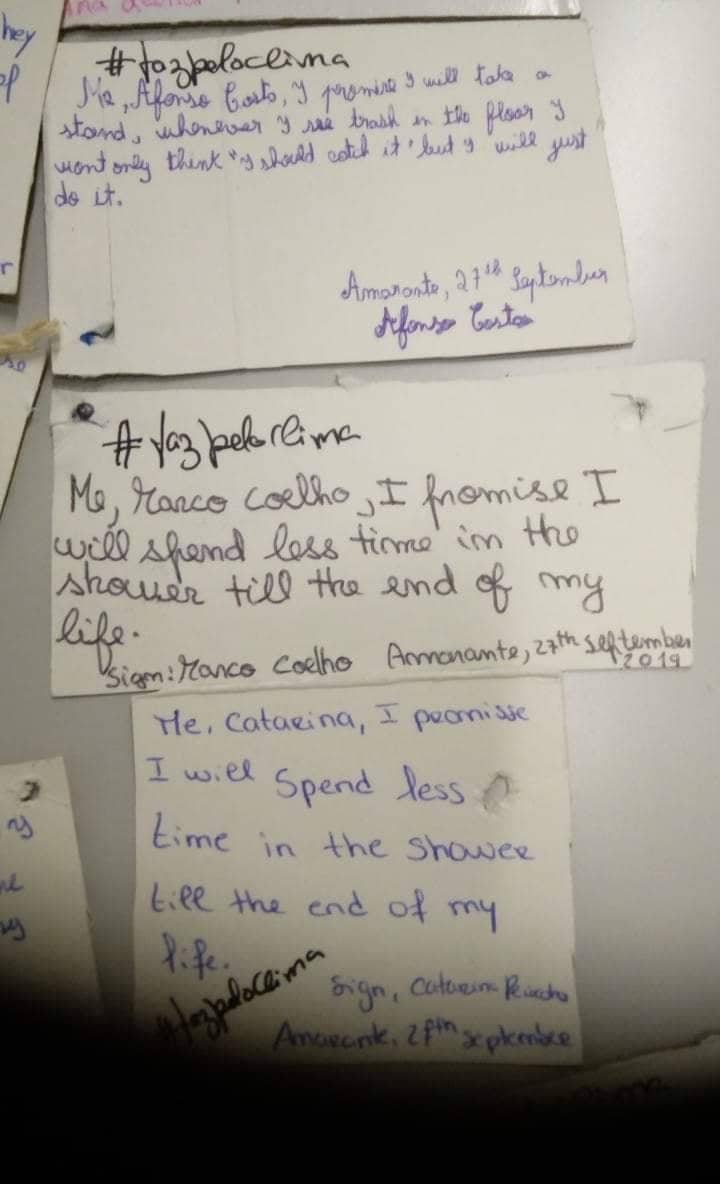 #fazpeloclima
Me, Afonso Costo, I promise I will take a
stand, whenever I see trash in the floor I
wont only think "I should catch it" but I will just
do it.
Amarante, 27th September
Afonso Costa
#fazpeloclima
Me, Marco Coelho, I promise I
will spend less time in the
shower till the end of my
life.
Sign: Marco Coelho Amarante, 27th september
2019
Me, Catarina, I promisse
I will Spend less
time in the shower
till the end of my
life.
#fazpeloclima
Sign, Catarina
Amarante, 27th septembre
hey
of
r
so
ny